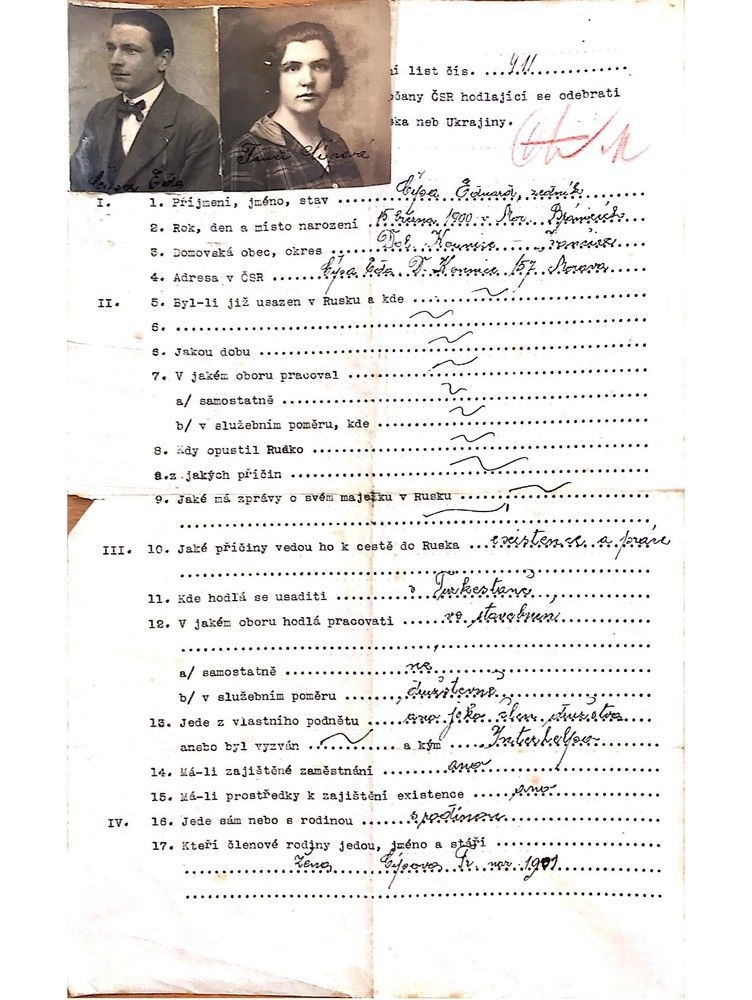 ní list čís. ... 911
občany ČSR hodlající se odebrati
ska neb Ukrajiny.
Číp Eda
Čípová
I. 1. Příjmení, jméno, stav Čípa Eduard, zedník
2. Rok, den a místo narození 15 března 1900 v Mor.
3. Domovská obec, okres Dol. Kounice
4. Adresa v ČSR Čípa Eda D. Kounice 157 Morava
II. 5. Byl-li již usazen v Rusku a kde
6.
6. Jakou dobu
7. V jakém oboru pracoval
a/ samostatně
b/ v služebním poměru, kde
8. Kdy opustil Rudko
8.z jakých příčin
9. Jaké má zprávy o svém majetku v Rusku
III. 10. Jaké příčiny vedou ho k cestě do Ruska existence a práce
11. Kde hodlá se usaditi v Turkestaně
12. V jakém oboru hodlá pracovati ve stavebním
a/ samostatně ne
b/ v služebním poměru družstevně
13. Jede z vlastního podnětu ano jako člen družstva
anebo byl vyzván a kým Interhelpo
14. Má-li zajištěné zaměstnání ano
15. Má-li prostředky k zajištění existence ano
IV. 16. Jede sám nebo s rodinou s rodinou
17. Kteří členové rodiny jedou, jméno a stáří
žena Čípova Fr. nar. 1901